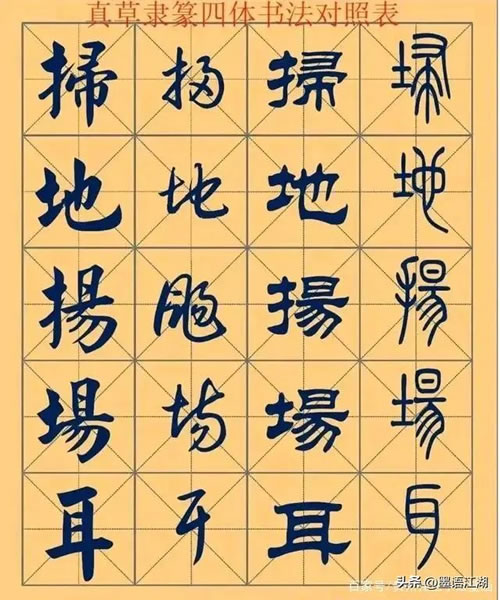 真草隶篆四体书法对照表
掃 掃 掃 埽
地 地 地 地
揚 揚 揚 揚
場 場 場 場
耳 耳 耳 耳
百家号/
头条 @墨语江湖